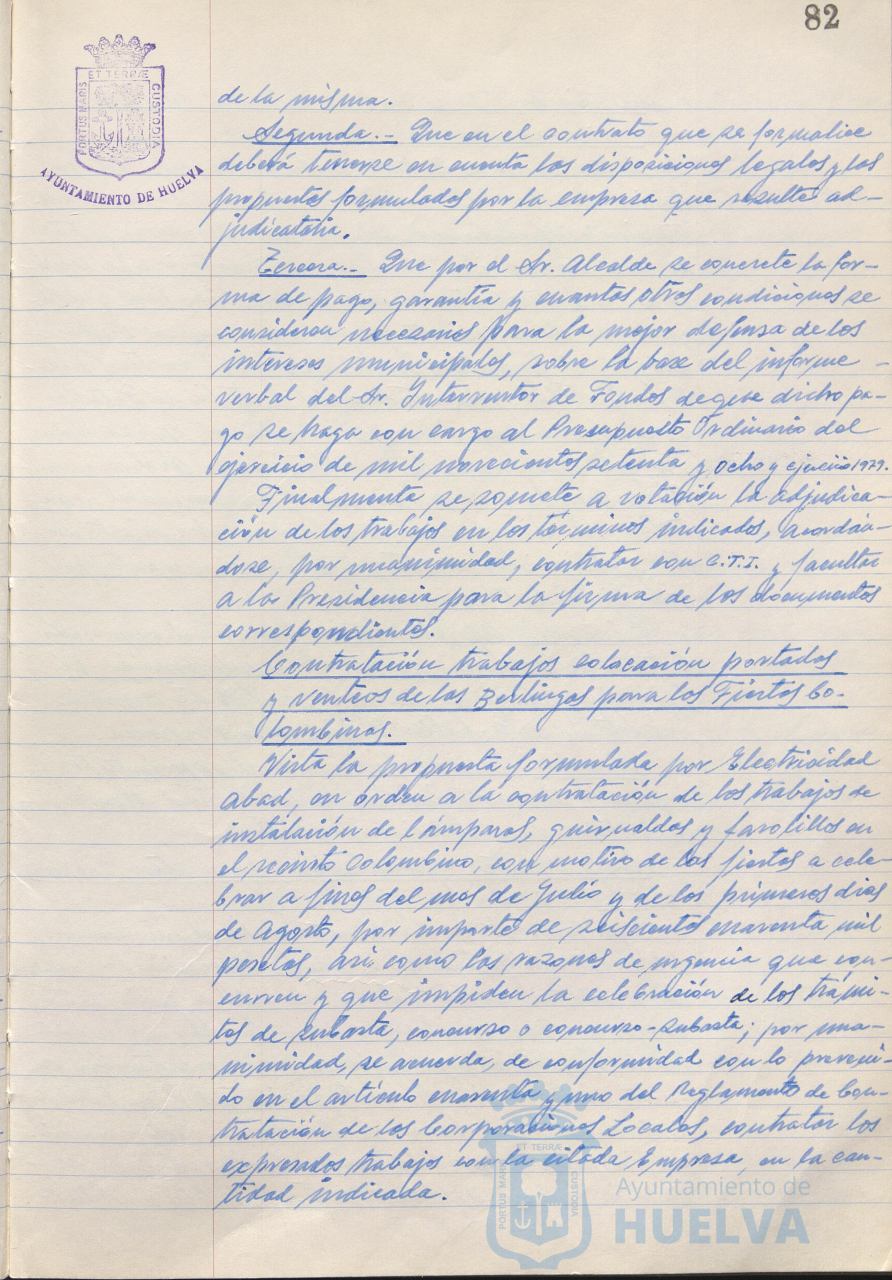 82
ET TERRÆ
PORTUS MARIS
CUSTODIA
AYUNTAMIENTO DE HUELVA
de la misma.
Segunda.- Que en el contrato que se formalice
deberá tenerse en cuenta las disposiciones legales y las
propuestas formuladas por la empresa que resulte ad-
judicataria.
Tercera.- Que por el Sr. Alcalde se concrete la for-
ma de pago, garantía y cuantas otras condiciones se
consideren necesarias para la mejor defensa de los
intereses municipales, sobre la base del informe
verbal del Sr. Interventor de Fondos de que dicho pa-
go se haga con cargo al Presupuesto Ordinario del
ejercicio de mil novecientos setenta y ocho y ejercicio 1979.
Finalmente se somete a votación la adjudica-
ción de los trabajos en los términos indicados, acordán-
dose, por unanimidad, contratar con C.T.I. y facultar
a la Presidencia para la firma de los documentos
correspondientes.
Contratación trabajos colocación portadas
y venteos de las Berlingas para las Fiestas Co-
lombinas.
Vista la propuesta formulada por Electricidad
Abad, en orden a la contratación de los trabajos de
instalación de lámparas, guirnaldas y farolillos en
el recinto Colombino, con motivo de las fiestas a cele-
brar a fines del mes de Julio y de los primeros dias
de Agosto, por importe de seiscientas cuarenta mil
pesetas, asi como las razones de urgencia que con-
curren y que impiden la celebración de los trámi-
tes de subasta, concurso o concurso-subasta; por una-
nimidad, se acuerda, de conformidad con lo preveni-
do en el artículo cuarenta y uno del Reglamento de Con-
tratación de las Corporaciones Locales, contratar los
expresados trabajos con la citada Empresa, en la can-
tidad indicada.
ET TERRÆ
PORTUS MARIS
CUSTODIA
Ayuntamiento de
HUELVA